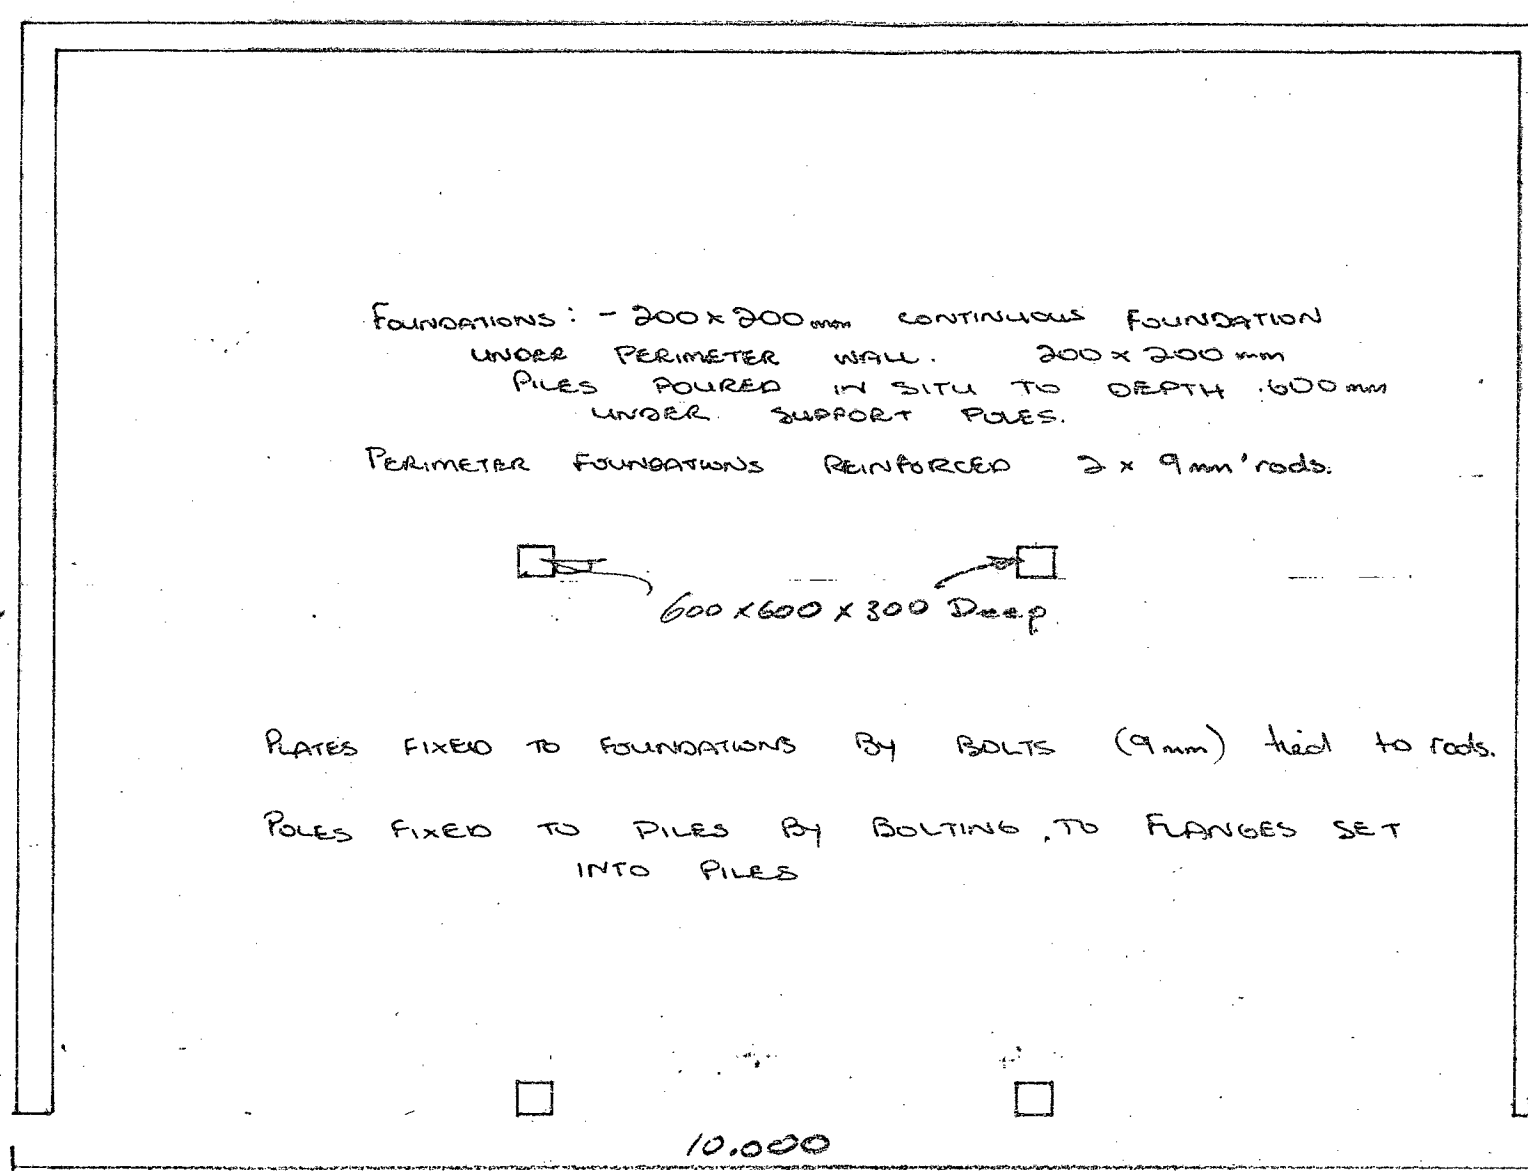 FOUNDATIONS: - 200 x 200 mm CONTINUOUS FOUNDATION
UNDER PERIMETER WALL. 200 x 200 mm
PILES POURED IN SITU TO DEPTH 600 mm
UNDER SUPPORT POLES.
PERIMETER FOUNDATIONS REINFORCED 2 x 9 mm rods.
600 x 600 x 300 Deep
PLATES FIXED TO FOUNDATIONS BY BOLTS (9 mm) tied to rods.
POLES FIXED TO PILES BY BOLTING, TO FLANGES SET
INTO PILES
10.000